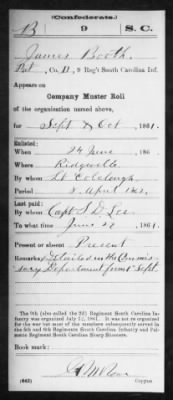 (Confederate.)
B 9 S. C.
James Booth
Pvt, Co. D, 9 Reg't South Carolina Inf.
Appears on
Company Muster Roll
of the organization named above,
for Sept & Oct, 1861.
Enlisted:
When 24 June, 186
Where Ridgeville
By whom Lt Colclough
Period 8 April 1862
Last paid:
By whom Capt S. D. Lee
To what time June 30, 1861.
Present or absent Present
Remarks: Detailed in the Commis-
sary Department from 1 Sept.
The 9th (also called the 2d) Regiment South Carolina In-
fantry was organized July 12, 1861. It was not re-organized
for the war but most of the members subsequently served in
the 5th and 6th Regiments South Carolina Infantry and Pal-
metto Regiment South Carolina Sharp Shooters.
Book mark:
(642) Copyist.